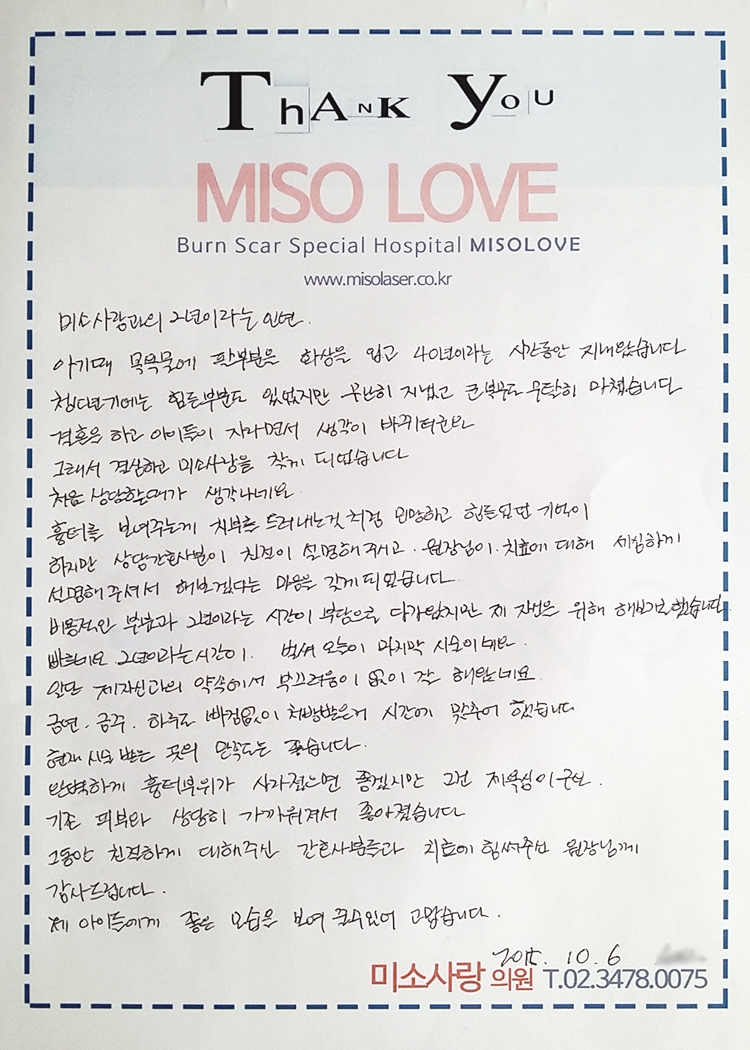 THANK YOU
MISO LOVE
Burn Scar Special Hospital MISOLOVE
www.misolaser.co.kr
미소사랑과의 2년이라는 인연.
아기때 목욕물에 팔부분은 화상을 입고 40년이라는 시간동안 지내왔습니다
힘든부분도 있었지만 무난히 지냈고 군복무도 무탈히 마쳤습니다
결혼을 하고 아이들이 자라면서 생각이 바뀌더군요
그래서 결심하고 미소사랑을 찾게 되었습니다
처음 상담할때가 생각나네요
흉터를 보여주는게 치부를 드러내는것처럼 민망하고 힘들었던 기억이
하지만 상담간호사분이 친절이 설명해주시고. 원장님이 치료에 대해 세심하게
설명해주셔서 해보겠다는 마음을 갖게되었습니다.
비용적인 부분과 2년이라는 시간이 부담으로 다가왔지만 제 자신을 위해 해보기로했습니다.
빠르네요 2년이라는시간이. 벌써 오늘이 마지막 시술이네요.
일단 제자신과의 약속에서 부끄러움이 없이 잘 해왔네요.
금연. 금주. 하루도 빠짐없이 처방받은거 시간에 맞추어 했습니다
현재 시술 받은 곳의 만족도는 좋습니다.
완벽하게 흉터부위가 사라졌으면 좋겠지만 그건 제욕심이구요.
기존 피부와 상당히 가까워져서 좋아졌습니다
그동안 친절하게 대해주신 간호사분들과 치료에 힘써주신 원장님께
감사드립니다.
제 아이들에게 좋은 모습을 보여 줄수있어 고맙습니다.
2015. 10. 6
미소사랑 의원 T.02.3478.0075